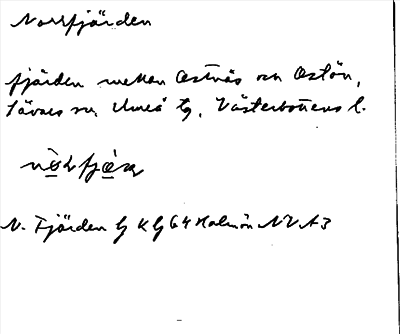 Norrfjärden
fjärden mellan Ostnäs och Ostön,
Sävars sn, Umeå tg, Västerbottens l.
N. Fjärden G KG 64 Holmön NV A3